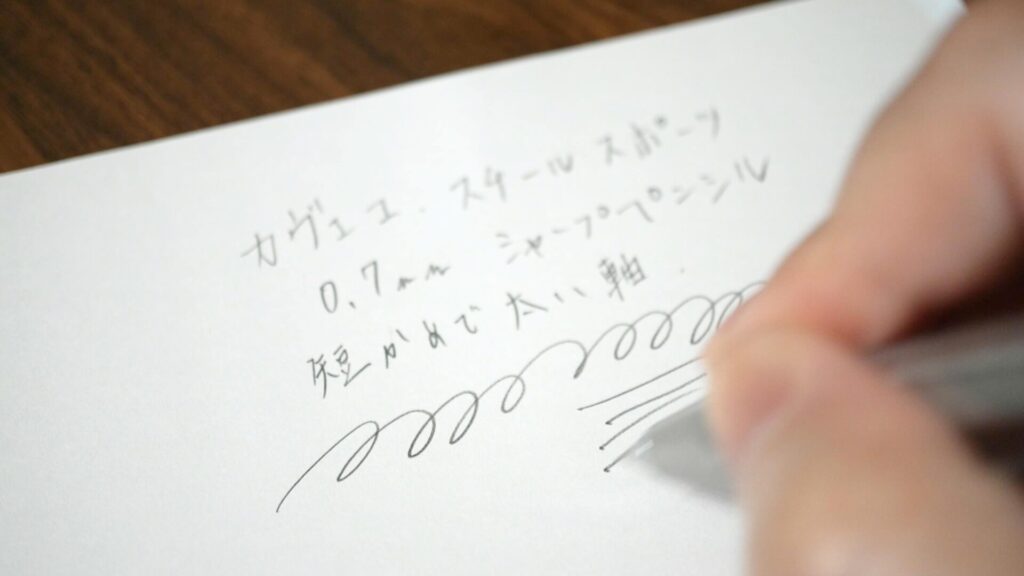 カヴェエ. スチールスポーツ
0.7mm シャープペンシル
短かめで太い軸.